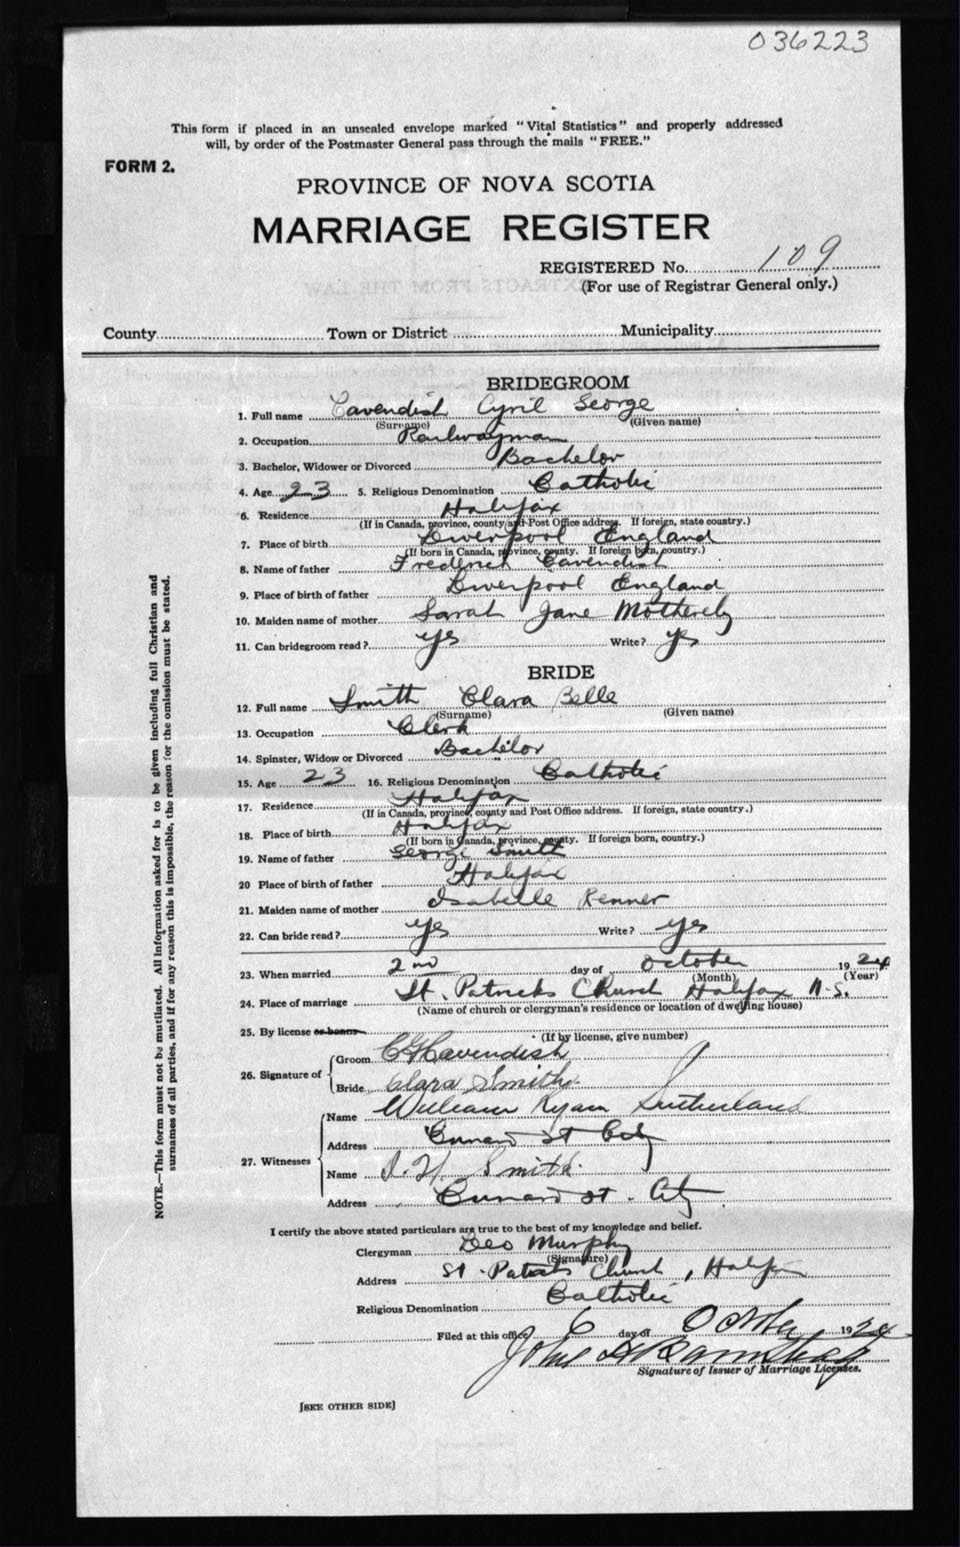 036223
This form if placed in an unsealed envelope marked "Vital Statistics" and properly addressed
will, by order of the Postmaster General pass through the mails "FREE."
FORM 2.
PROVINCE OF NOVA SCOTIA
MARRIAGE REGISTER
REGISTERED No. 109
(For use of Registrar General only.)
County Town or District Municipality
BRIDEGROOM
1. Full name Cavendish Cyril George
(Surname) (Given name)
2. Occupation Railwayman
3. Bachelor, Widower or Divorced Bachelor
4. Age 23 5. Religious Denomination Catholic
6. Residence Halifax
(If in Canada, province, county and Post Office address. If foreign, state country.)
7. Place of birth Liverpool England
(If born in Canada, province, county. If foreign born, country.)
8. Name of father Frederick Cavendish
9. Place of birth of father Liverpool England
10. Maiden name of mother Sarah Jane
11. Can bridegroom read? yes Write? yes
BRIDE
12. Full name Smith Clara Belle
(Surname) (Given name)
13. Occupation Clerk
14. Spinster, Widow or Divorced Bachelor
15. Age 23 16. Religious Denomination Catholic
17. Residence Halifax
(If in Canada, province, county and Post Office address. If foreign, state country.)
18. Place of birth Halifax
(If born in Canada, province, county. If foreign born, country.)
19. Name of father George Smith
20 Place of birth of father Halifax
21. Maiden name of mother Isabelle Renner
22. Can bride read? yes Write? yes
23. When married 2nd day of October 1924
(Month) (Year)
24. Place of marriage St. Patricks Church Halifax N.S.
(Name of church or clergyman's residence or location of dwelling house)
25. By license or banns
(If by license, give number)
26. Signature of Groom CG Cavendish
Bride Clara Smith
27. Witnesses Name William Ryan Sutherland
Address Cunard St City
Name Smith
Address Cunard St. City
I certify the above stated particulars are true to the best of my knowledge and belief.
Clergyman Geo Murphy
(Signature)
Address St. Patricks Church, Halifax
Religious Denomination Catholic
Filed at this office 6 day of October 1924
John
Signature of Issuer of Marriage Licenses.
[SEE OTHER SIDE]
NOTE.—This form must not be mutilated. All information asked for is to be given including full Christian and
surnames of all parties, and if for any reason this is impossible, the reason for the omission must be stated.